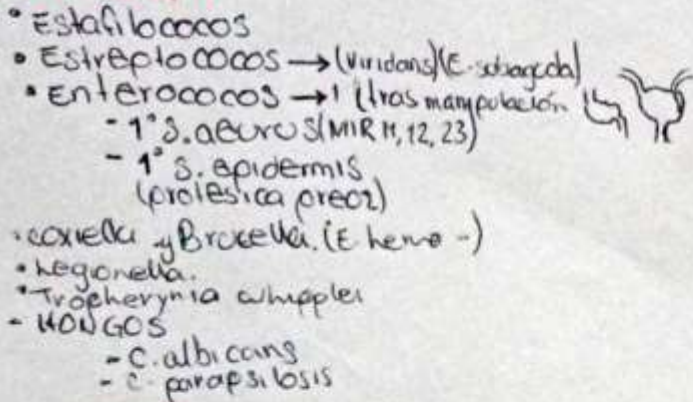 • Estafilococos
• Estreptococos → (viridans) (E. subaguda)
• Enterococos → 1 (tras manipulación
- 1º S. aeurus (MIR 11, 12, 23)
- 1º S. epidermis
(protésica precoz)
• coxiella y Brucella. (E. hemo -)
• Legionella.
• Tropherynia whipplei
- HONGOS
- C. albicans
- C. parapsilosis